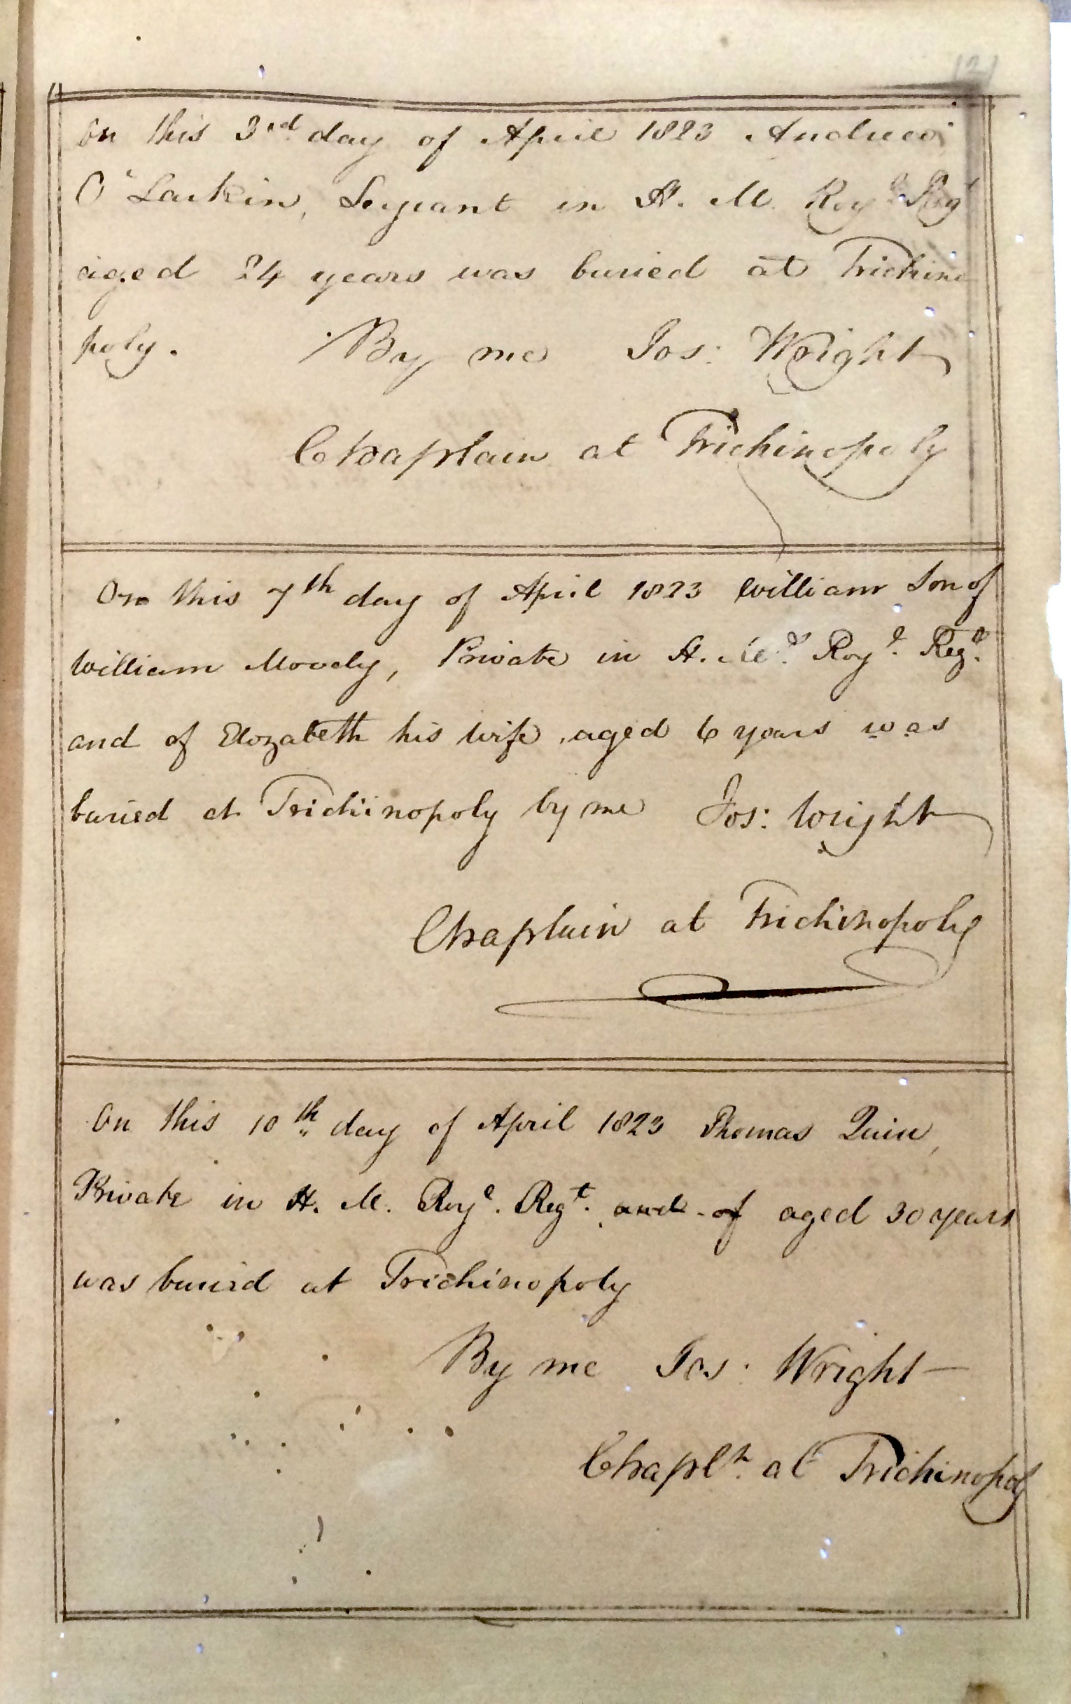 On this 3rd day of April 1823 Andrew
O'Larkin, Serjeant in H. M. Royl. Regt
aged 24 years was buried at Trichino
poly. By me Jos: Wright
Chaplain at Trichinopoly
On this 7th day of April 1823 William Son of
William Moody, Private in H. M.s Royl. Regt.
and of Elizabeth his wife, aged 6 years was
buried at Trichinopoly by me Jos: Wright
Chaplain at Trichinopoly
On this 10th day of April 1823 Thomas Quin,
Private in H. M. Royl. Regt. and of aged 30 years
was buried at Trichinopoly
By me Jos: Wright
Chapln. at Trichinopoly